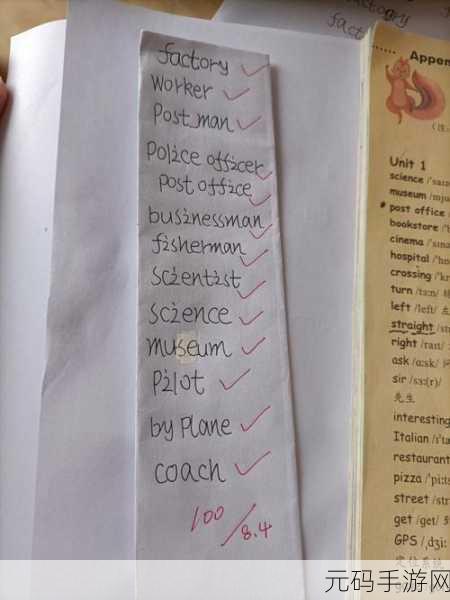 factory
fact
factory
worker
Post man
Police officer
Post office
businessman
fisherman
scientist
science
museum
Pilot
by Plane
coach
100
8.4
Appen
Unit 1
science
museum
post office
bookstore
cinema
hospital
crossing
turn /tɜːn/
left /left/ 左
straight
right /raɪt/
ask /ɑːsk/ 问
sir /sɜː(r)/
先生
interesting
Italian
restaurant
pizza
street
get /get/
GPS
定位系统
元码手游网